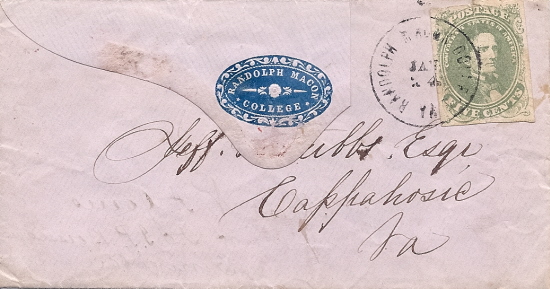 RANDOLPH MACON
COLLEGE
RANDOLPH MACON COLL
VA
JAN
POSTAGE
FIVE CENTS
Jeff. Stubbs, Esqr
Cappahosic
Va